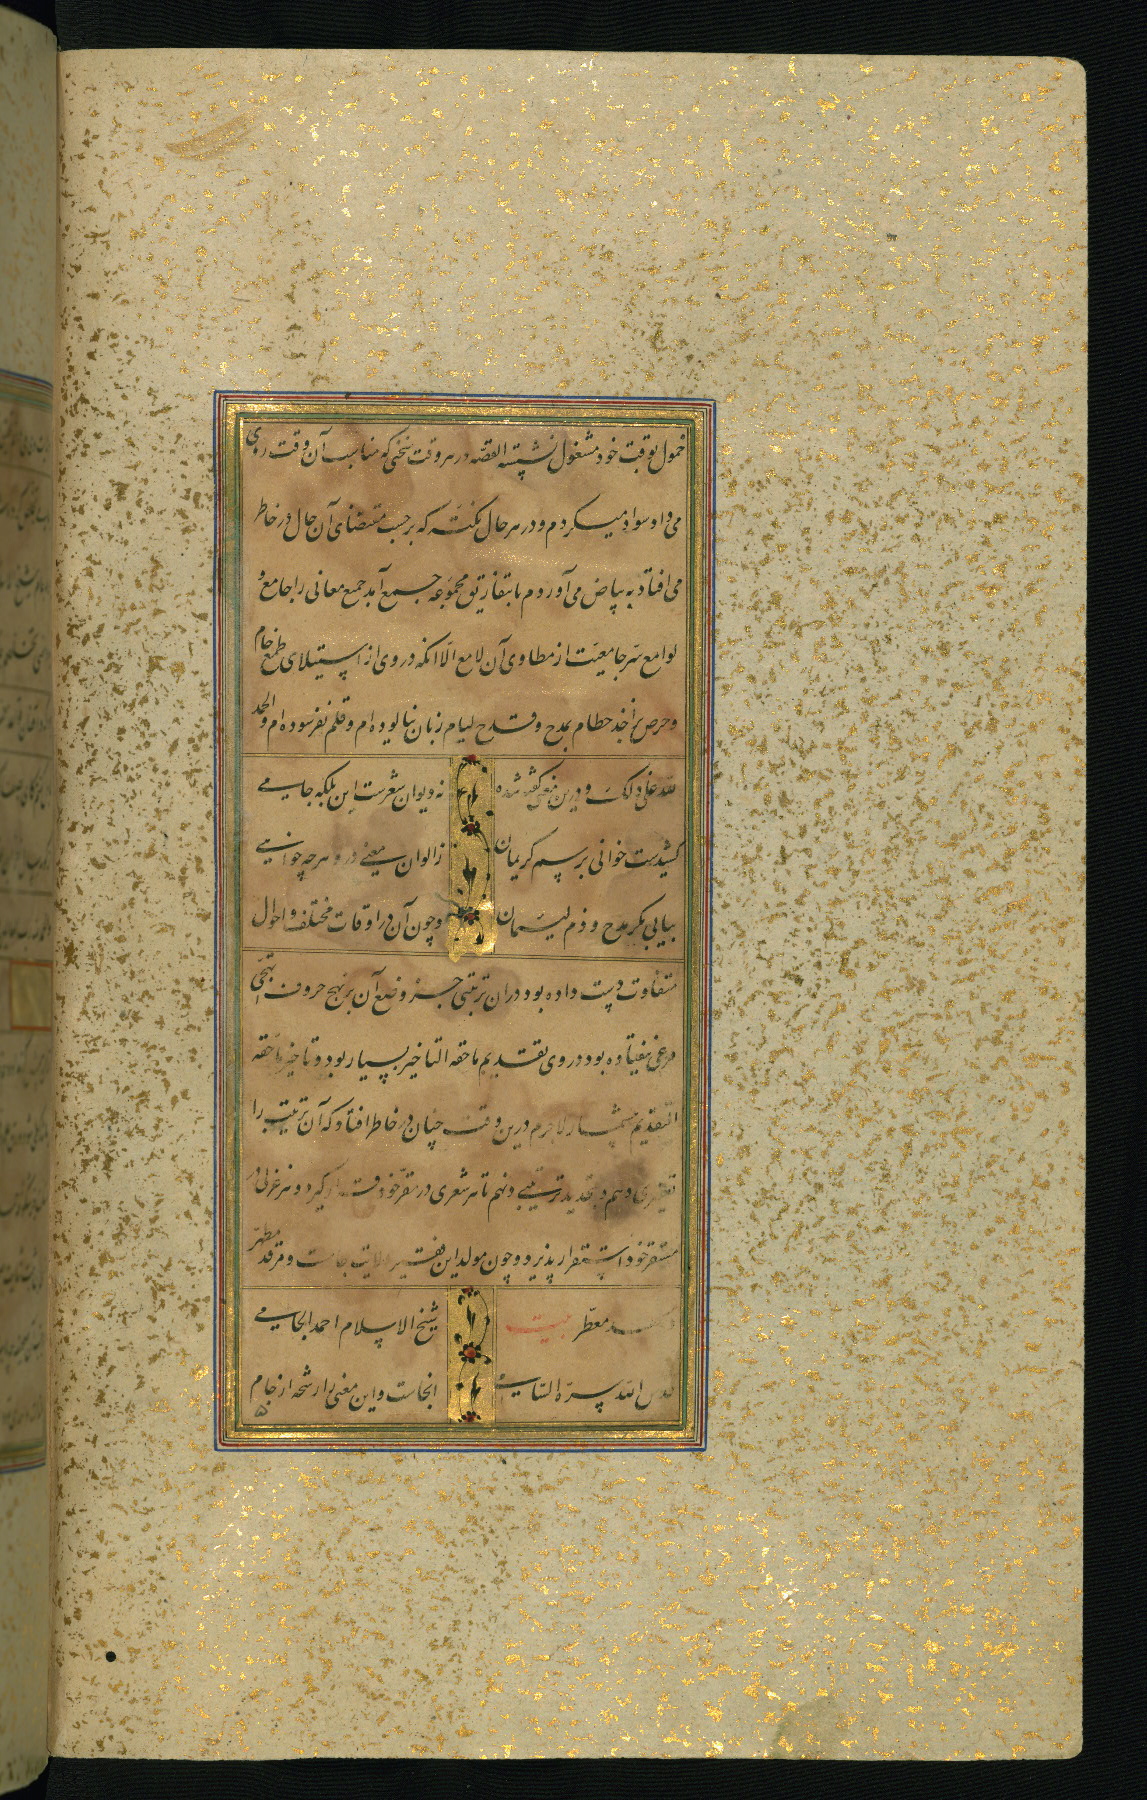 خمول بوقت خود مشغول نشسته القصه در هر وقت سخنی که مناسب آن وقت روی
می داد سواد میکردم و در هر حال نکته که بر حسب مقتضای آن حال در خاطر
می افتاد به بیاض می آوردم تا بتفاریق مجموعه جمع آمد جمیع معانی را جامع و
لوامع سر جامعیت از مطاوی آن لامع الا انکه در وی از استیلای طمع خام
و حرص بر اخذ حطام بمدح و قدح لیام زبان نیالوده ام و قلم نفرسوده ام و الحمد
لله علی ذلک و درین معنی گفته شده نه دیوان شعرست این بلکه جامی
کشیدست خوانی برسم کریمان ز الوان معنی درو هر چه خواهی
بیابی مگر مدح و ذم لئیمان و چون آن در اوقات مختلف و احوال
متفاوت دست داده بود در ان ترتیبی جز وضع آن بر نهج حروف تهجی
مرعی نیفتاده بود در وی تقدیم ما حقه التاخیر بسیار بود و تاخیر ما حقه
التقدیم بیشمار لاجرم درین وقت چنان در خاطر افتاد که آن ترتیب را
تغییری دهم و تجدید ترتیبی دهم تا هر شعری در مقر خود قرار گیرد و هر غزلی در
مستقر خود استقرار پذیرد و چون مولد این فقیر ولایت جامست و مرقد مطهر
و مشهد معطر بیت شیخ الاسلام احمد الجامی
قدس الله سره السامی انجاست و این معنی را رشحه از جام